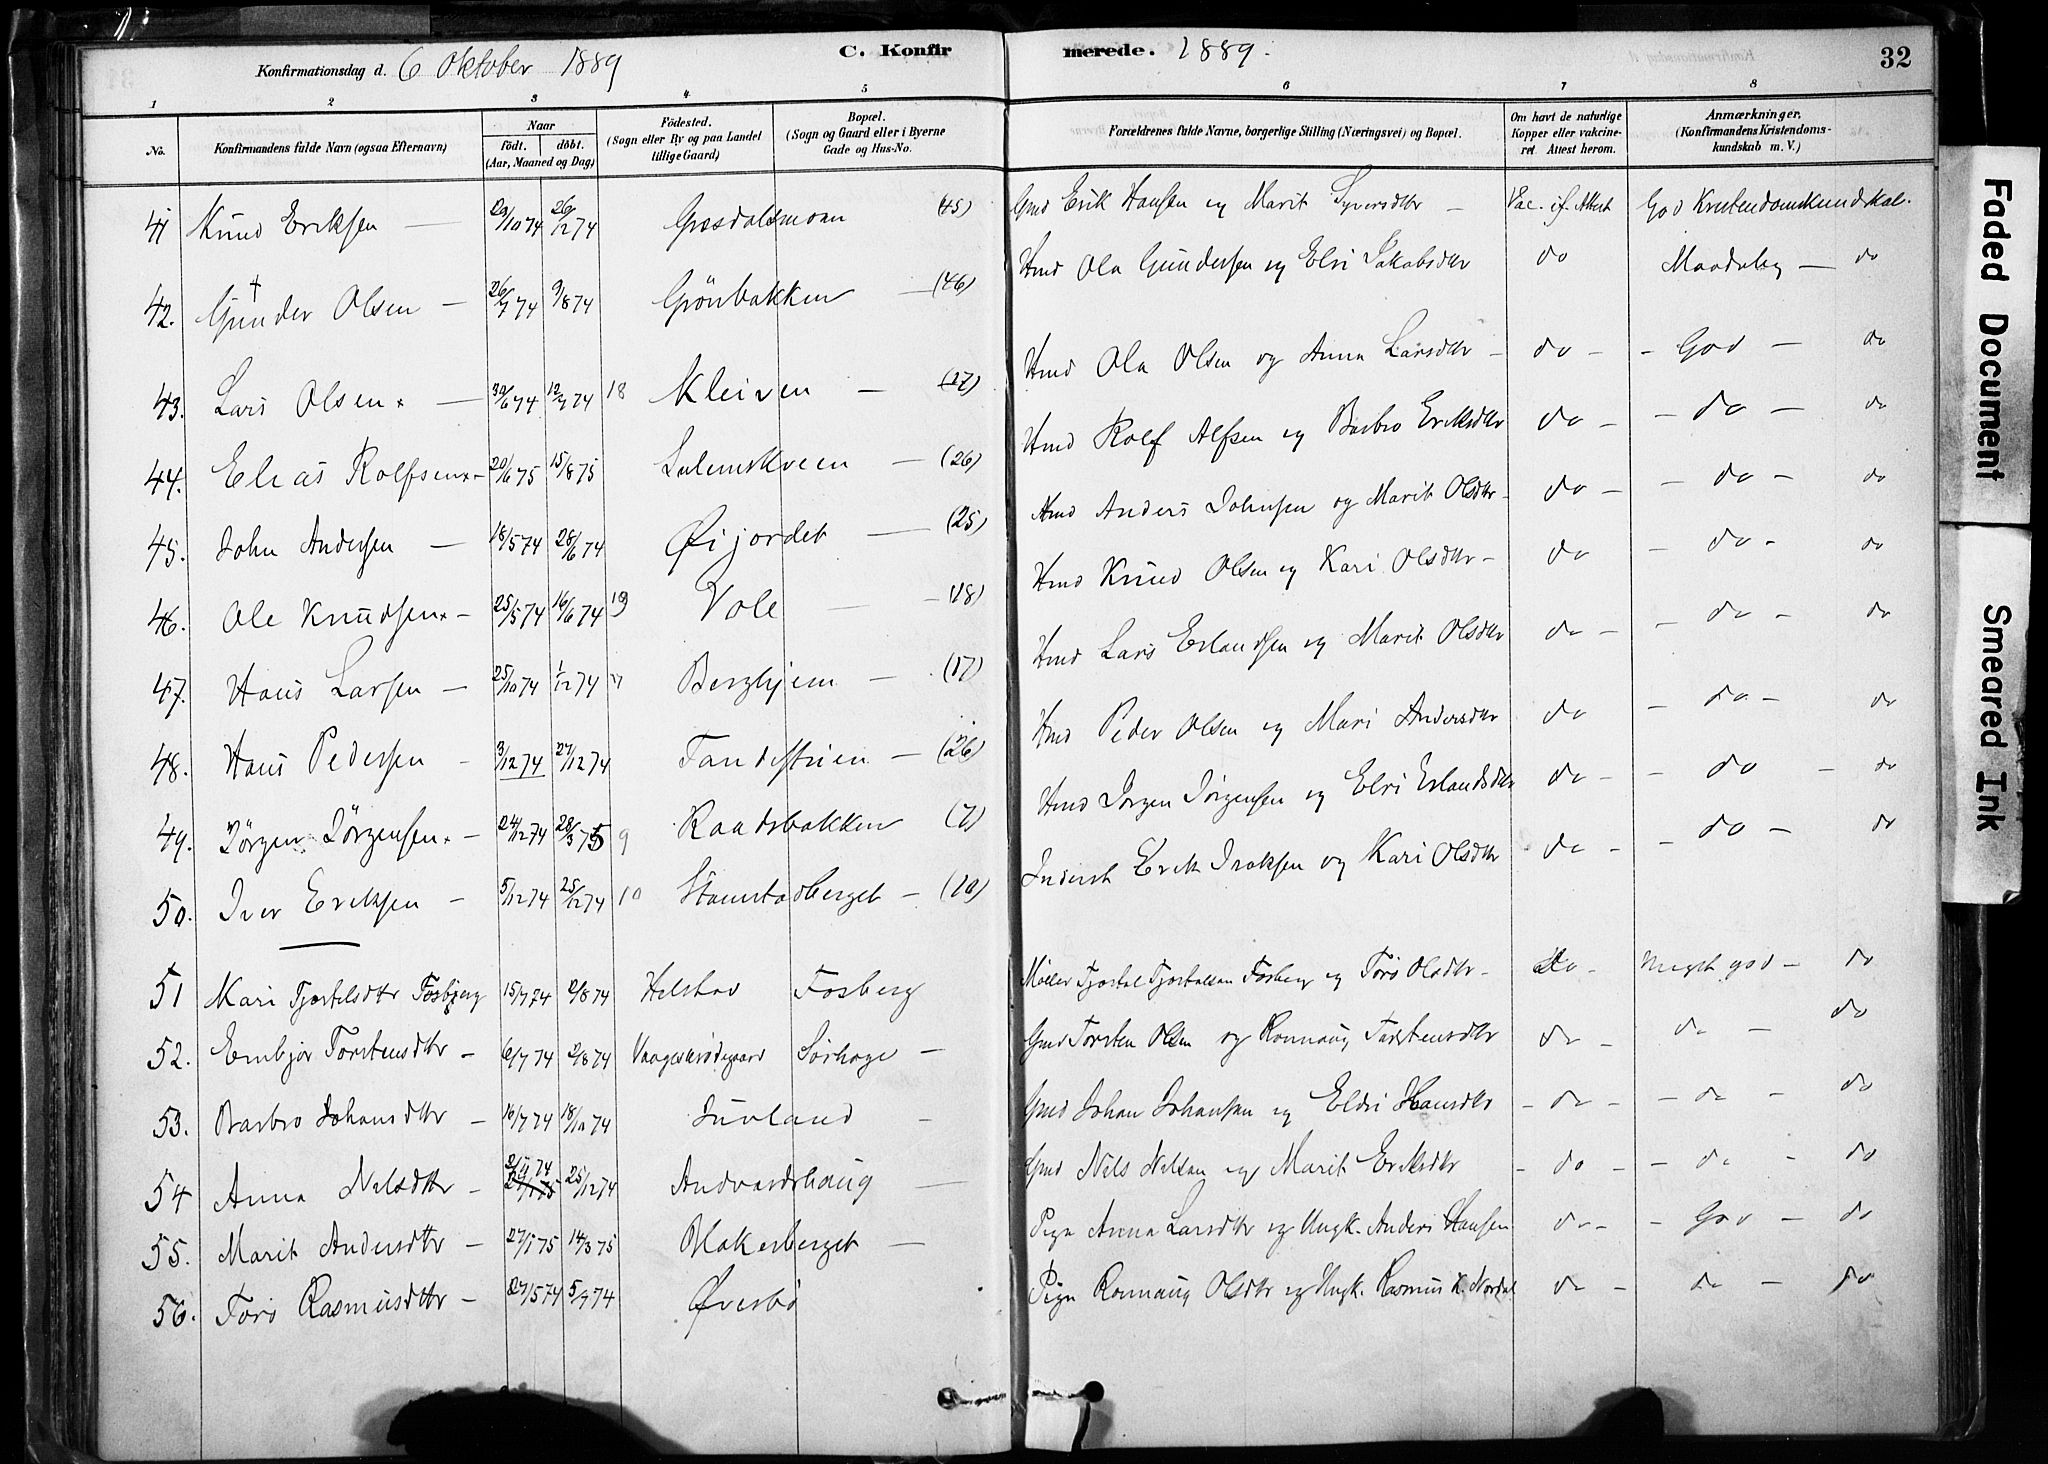 Konfirmationsdag d. 6 Oktober 1889 C. Konfirmerede. 1889. 32
1 2 3 4 5 6 7 8
No. Konfirmandens fulde Navn (ogsaa Efternavn) Naar født. døbt. (Aar, Maaned og Dag) Fødested. (Sogn eller By og paa Landet tillige Gaard) Bopæl. (Sogn og Gaard eller i Byerne Gade og Hus-No. Forældrenes fulde Navne, borgerlige Stilling (Næringsvei) og Bopæl. Om havt de naturlige Kopper eller vakcineret. Attest herom. Anmærkninger. (Konfirmandens Kristendomskundskab m. V.)
41 Knud Eriksen — 29/10 74 26/12 74 Gresdalsmoen (45) Gmd Erik Hansen og Marit Syversdtr — Vac. if. Attest God Kristendomskundskab.
42. Gunder Olsen — 26/7 74 9/8 74 Grönbakken — (46) Hmd Ola Gundersen og Elri Jakobsdtr do Maadelig — do
43. Lars Olsen — 30/6 74 12/7 74 18 Kleiven — (17) Hmd Ola Olsen og Anna Larsdtr — do — - God — do
44. Elias Rolfsen — 20/6 75 15/8 75 — (26) Hmd Rolf Alfsen og Barbro Eriksdtr do — — do — do
45. John Andersen — 18/5 74 28/6 74 Øijordet — (25) Hmd Anders Johnsen og Marit Olsdtr — do — — do — do
46. Ole Knudsen — 25/5 74 16/6 74 19 Vole — (18) Hmd Knud Olsen og Kari Olsdtr — do — do - do
47. Hans Larsen — 25/10 74 1/12 74 Berghjem — (17) Hmd Lars Erlandsen og Marit Olsdtr do — — do — do
48. Hans Pedersen - 3/12 74 27/12 74 Tandestuen — (26) Hmd Peder Olsen og Mari Andersdtr do — do — do
49. Jörgen Jörgensen — 24/12 74 28/3 75 9 Raadsbakken (7) Hmd Jörgen Jörgensen og Elri Erlandsdtr do — — do — do
50. Iver Eriksen — 5/12 74 25/12 74 10 Stamstadberget — (10) Inderst Erik Iraksen og Kari Olsdtr do — — do — do
51 Kari Tjostelsdtr Fosberg 15/7 74 2/8 74 Helstad Fosberg Møller Tjostel Tjostelsen Fosberg og Toro Olsdtr — do — Meget god — do
52. Embjor Torstensdtr — 6/7 74 2/8 74 Sörhage — Gmd Torsten Olsen og Ronnaug Torstensdtr do — do — do
53. Barbro Johansdtr — 16/7 74 18/10 74 Juvland — Gmd Johan Johansen og Eldri Hansdtr — do — — do — do
54 Anna Nilsdtr — 74 25/12 74 Andvordshaug — Gmd Nils Nilsen og Marit Eriksdtr — do — — do — do
55. Marit Andersdtr — 27/1 75 14/3 75 Blakerberget — Pige Anna Larsdtr og Ungk. Anders Hansen do — — God — do
56. Toro Rasmusdtr — 27/5 74 5/7 74 Øverbö Pige Ronnaug Olsdtr og Ungk. Rasmus K. Nordal do — do — do
Faded Document
Smeared Ink